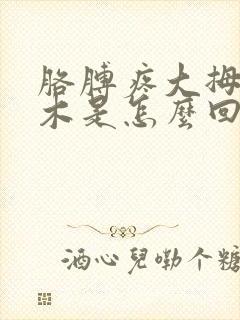 胳膊疼大拇
木是怎麼回
酒心兒嘞个糖